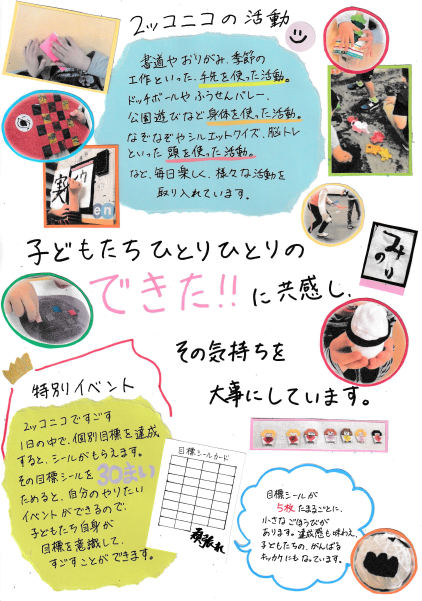 ニッコニコの活動
書道やおりがみ、季節の
工作といった、手先を使った活動。
ドッチボールやふうせんバレー、
公園遊びなど身体を使った活動。
なぞなぞやシルエットクイズ、脳トレ
といった 頭を使った活動。
など、毎日楽しく、様々な活動を
取り入れています。
実
en
みのり
子どもたち ひとりひとりの
できた!! に共感し、
その気持ちを
大事にしています。
特別イベント
ニッコニコですごす
1日の中で、個別目標を達成
すると、シールがもらえます。
その目標シールを30まい
ためると、自分のやりたい
イベントができるので、
子どもたち自身が
目標を意識して、
すごすことができます。
目標シールカード
頑張れ
目標シールが
5枚たまるごとに、
小さなごほうびが
あります。達成感も味わえ、
子どもたちの、がんばる
キッカケにもなっています。